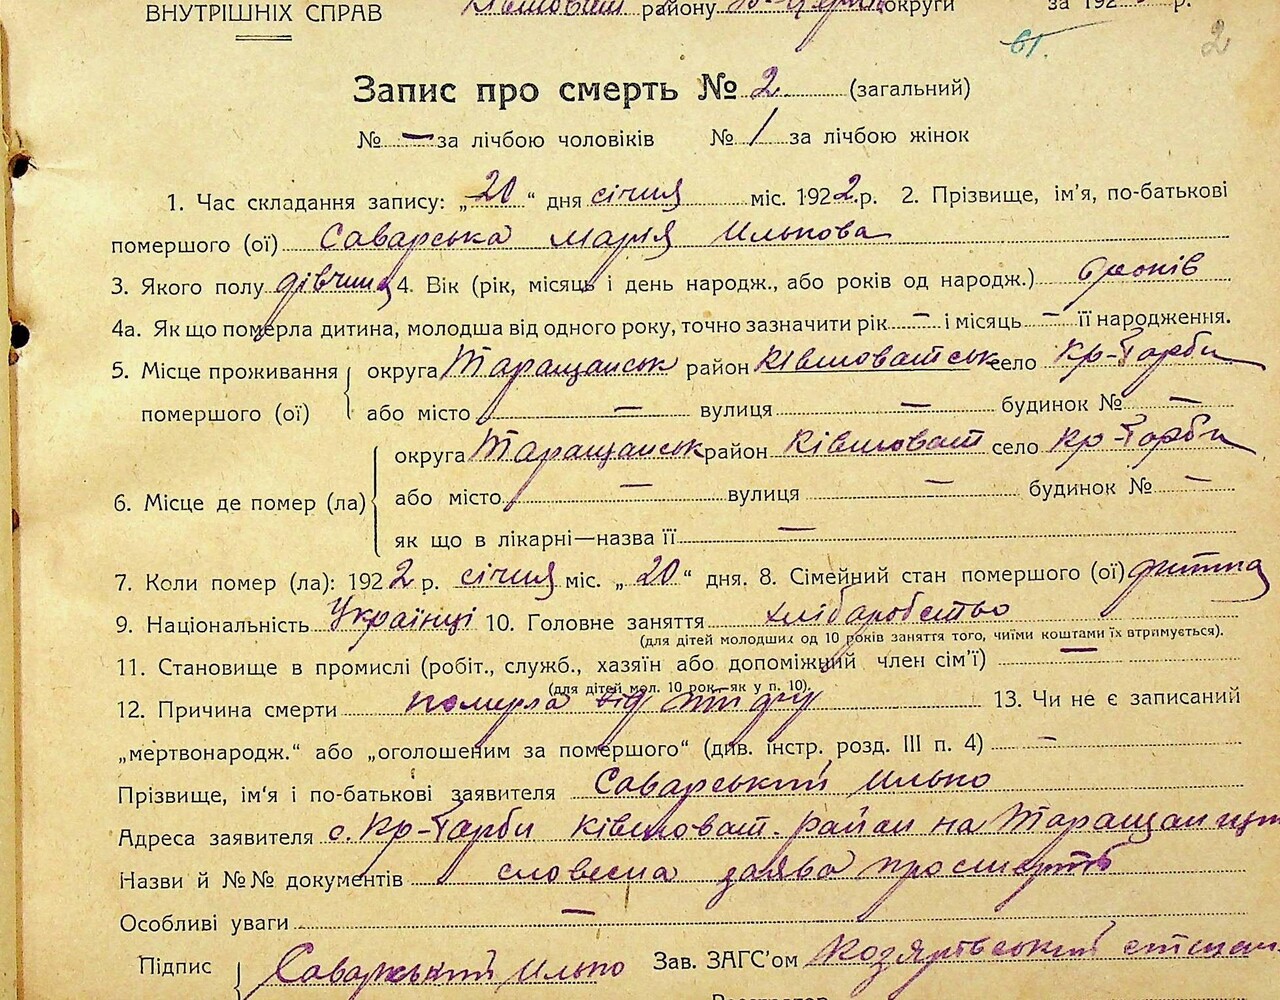 ВНУТРІШНІХ СПРАВ району округи за 192 р.
61. 2
Запис про смерть № 2 (загальний)
№ — за лічбою чоловіків № 1 за лічбою жінок
1. Час складання запису: „20“ дня січня міс. 1922 р. 2. Прізвище, ім'я, по-батькові
помершого (ої) Саварська Марія Илькова
3. Якого полу дівчина 4. Вік (рік, місяць і день народж., або років од народж.) 6 років
4а. Як що померла дитина, молодша від одного року, точно зазначити рік — і місяць — її народження.
5. Місце проживання округа Таращанськ район Ківшоватськ село Кр-Гарби
помершого (ої) або місто — вулиця — будинок № —
округа Таращанськ район Ківшоват село Кр-Гарби
6. Місце де помер (ла) або місто — вулиця — будинок № —
як що в лікарні—назва її —
7. Коли помер (ла): 1922 р. січня міс. „20“ дня. 8. Сімейний стан помершого (ої)
9. Національність Українці 10. Головне заняття хліборобство
(для дітей молодших од 10 років заняття того, чиїми коштами їх втримується).
11. Становище в промислі (робіт., служб., хазяїн або допоміжний член сім'ї) —
(для дітей мол. 10 рок.—як у п. 10).
12. Причина смерти померла від тифу 13. Чи не є записаний
„мертвонародж.“ або „оголошеним за помершого“ (див. інстр. розд. III п. 4) —
Прізвище, ім'я і по-батькові заявителя Саварський Илько
Адреса заявителя с. Кр-Гарби Ківшоват. район на Таращанщ
Назви й №№ документів словесна заява про смерть
Особливі уваги —
Підпис Саварський Илько Зав. ЗАГС'ом